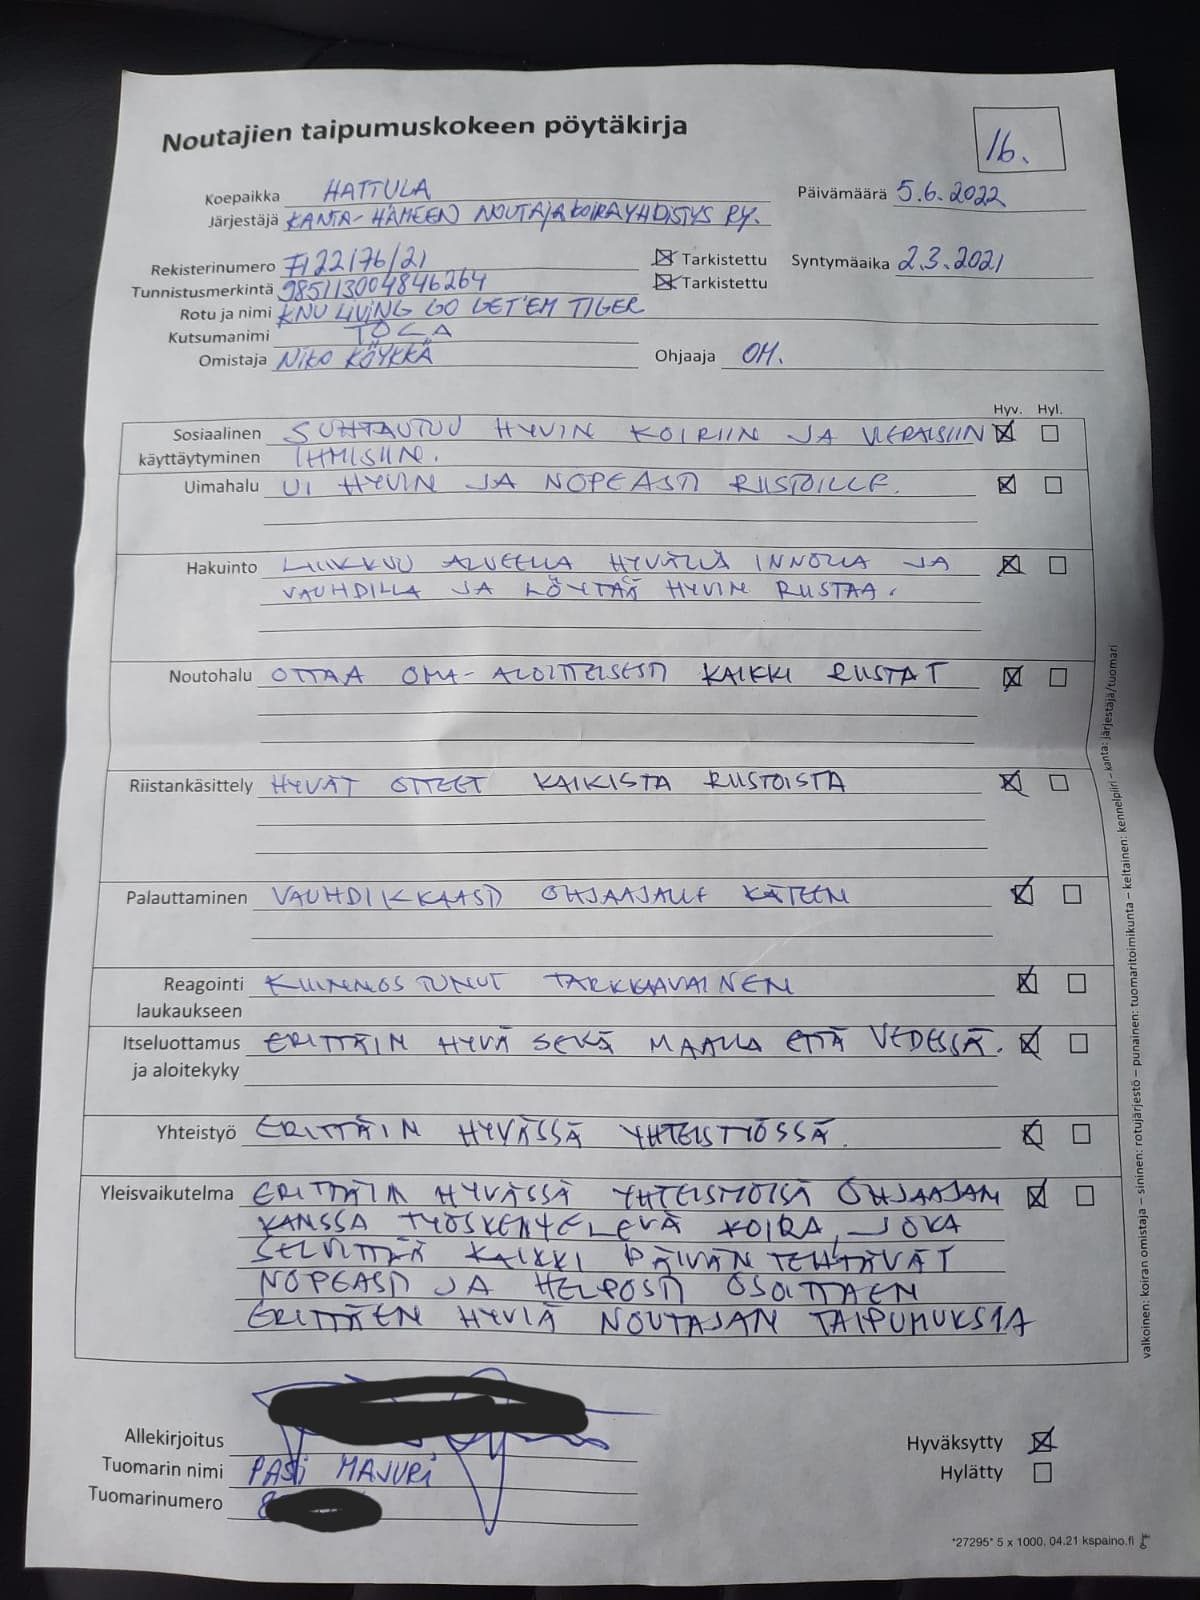 Noutajien taipumuskokeen pöytäkirja
16.
Koepaikka HATTULA Päivämäärä 5.6.2022
Järjestäjä KANTA-HÄMEEN NOUTAJAKOIRAYHDISTYS RY.
Rekisterinumero FI22176/21 Tarkistettu Syntymäaika 2.3.2021
Tunnistusmerkintä 985113004846264 Tarkistettu
Rotu ja nimi KNU LIVING GO GET'EM TIGER
Kutsumanimi
Omistaja NIKO KÖYKKÄ Ohjaaja OM.
Hyv. Hyl.
Sosiaalinen SUHTAUTUU HYVIN KOIRIIN JA VIERAISIIN
käyttäytyminen IHMISIIN.
Uimahalu UI HYVIN JA NOPEASTI RIISTOILLE.
Hakuinto LIIKKUU ALUEELLA HYVÄLLÄ INNOLLA JA
VAUHDILLA JA LÖYTÄÄ HYVIN RIISTAA.
Noutohalu OTTAA OMA-ALOITTEISESTI KAIKKI RIISTAT
Riistankäsittely HYVÄT OTTEET KAIKISTA RIISTOISTA
Palauttaminen VAUHDIKKAASTI OHJAAJALLE KÄTEEN
Reagointi KIINNOSTUNUT TARKKAAVAINEN
laukaukseen
Itseluottamus ERITTÄIN HYVÄ SEKÄ MAALLA ETTÄ VEDESSÄ.
ja aloitekyky
Yhteistyö ERITTÄIN HYVÄSSÄ YHTEISTYÖSSÄ.
Yleisvaikutelma ERITTÄIN HYVÄSSÄ YHTEISTYÖSSÄ OHJAAJAN
KANSSA TYÖSKENTELEVÄ KOIRA, JOKA
SELVITTÄÄ KAIKKI PÄIVÄN TEHTÄVÄT
NOPEASTI JA HELPOSTI OSOITTAEN
ERITTÄEN HYVIÄ NOUTAJAN TAIPUMUKSIA
Allekirjoitus
Tuomarin nimi PASI MAJURI
Tuomarinumero 8
Hyväksytty
Hylätty
valkoinen: koiran omistaja – sininen: rotujärjestö – punainen: tuomaritoimikunta – keltainen: kennelpiiri – kanta: järjestäjä/tuomari
*27295* 5 x 1000, 04.21 kspaino.fi